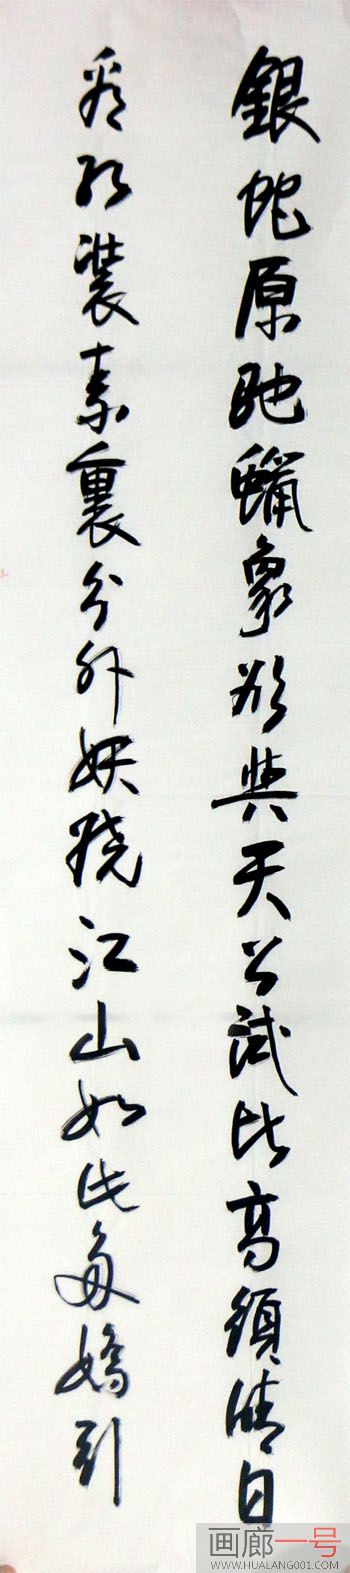 銀蛇原馳蠟象欲與天公試比高須晴日
看紅裝素裹分外妖嬈江山如此多嬌引
画廊一号
WWW.HUALANG001.COM